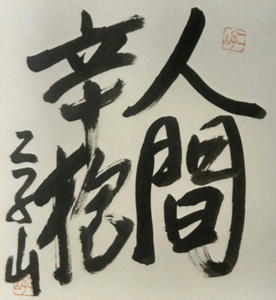 人間
辛抱
二子山